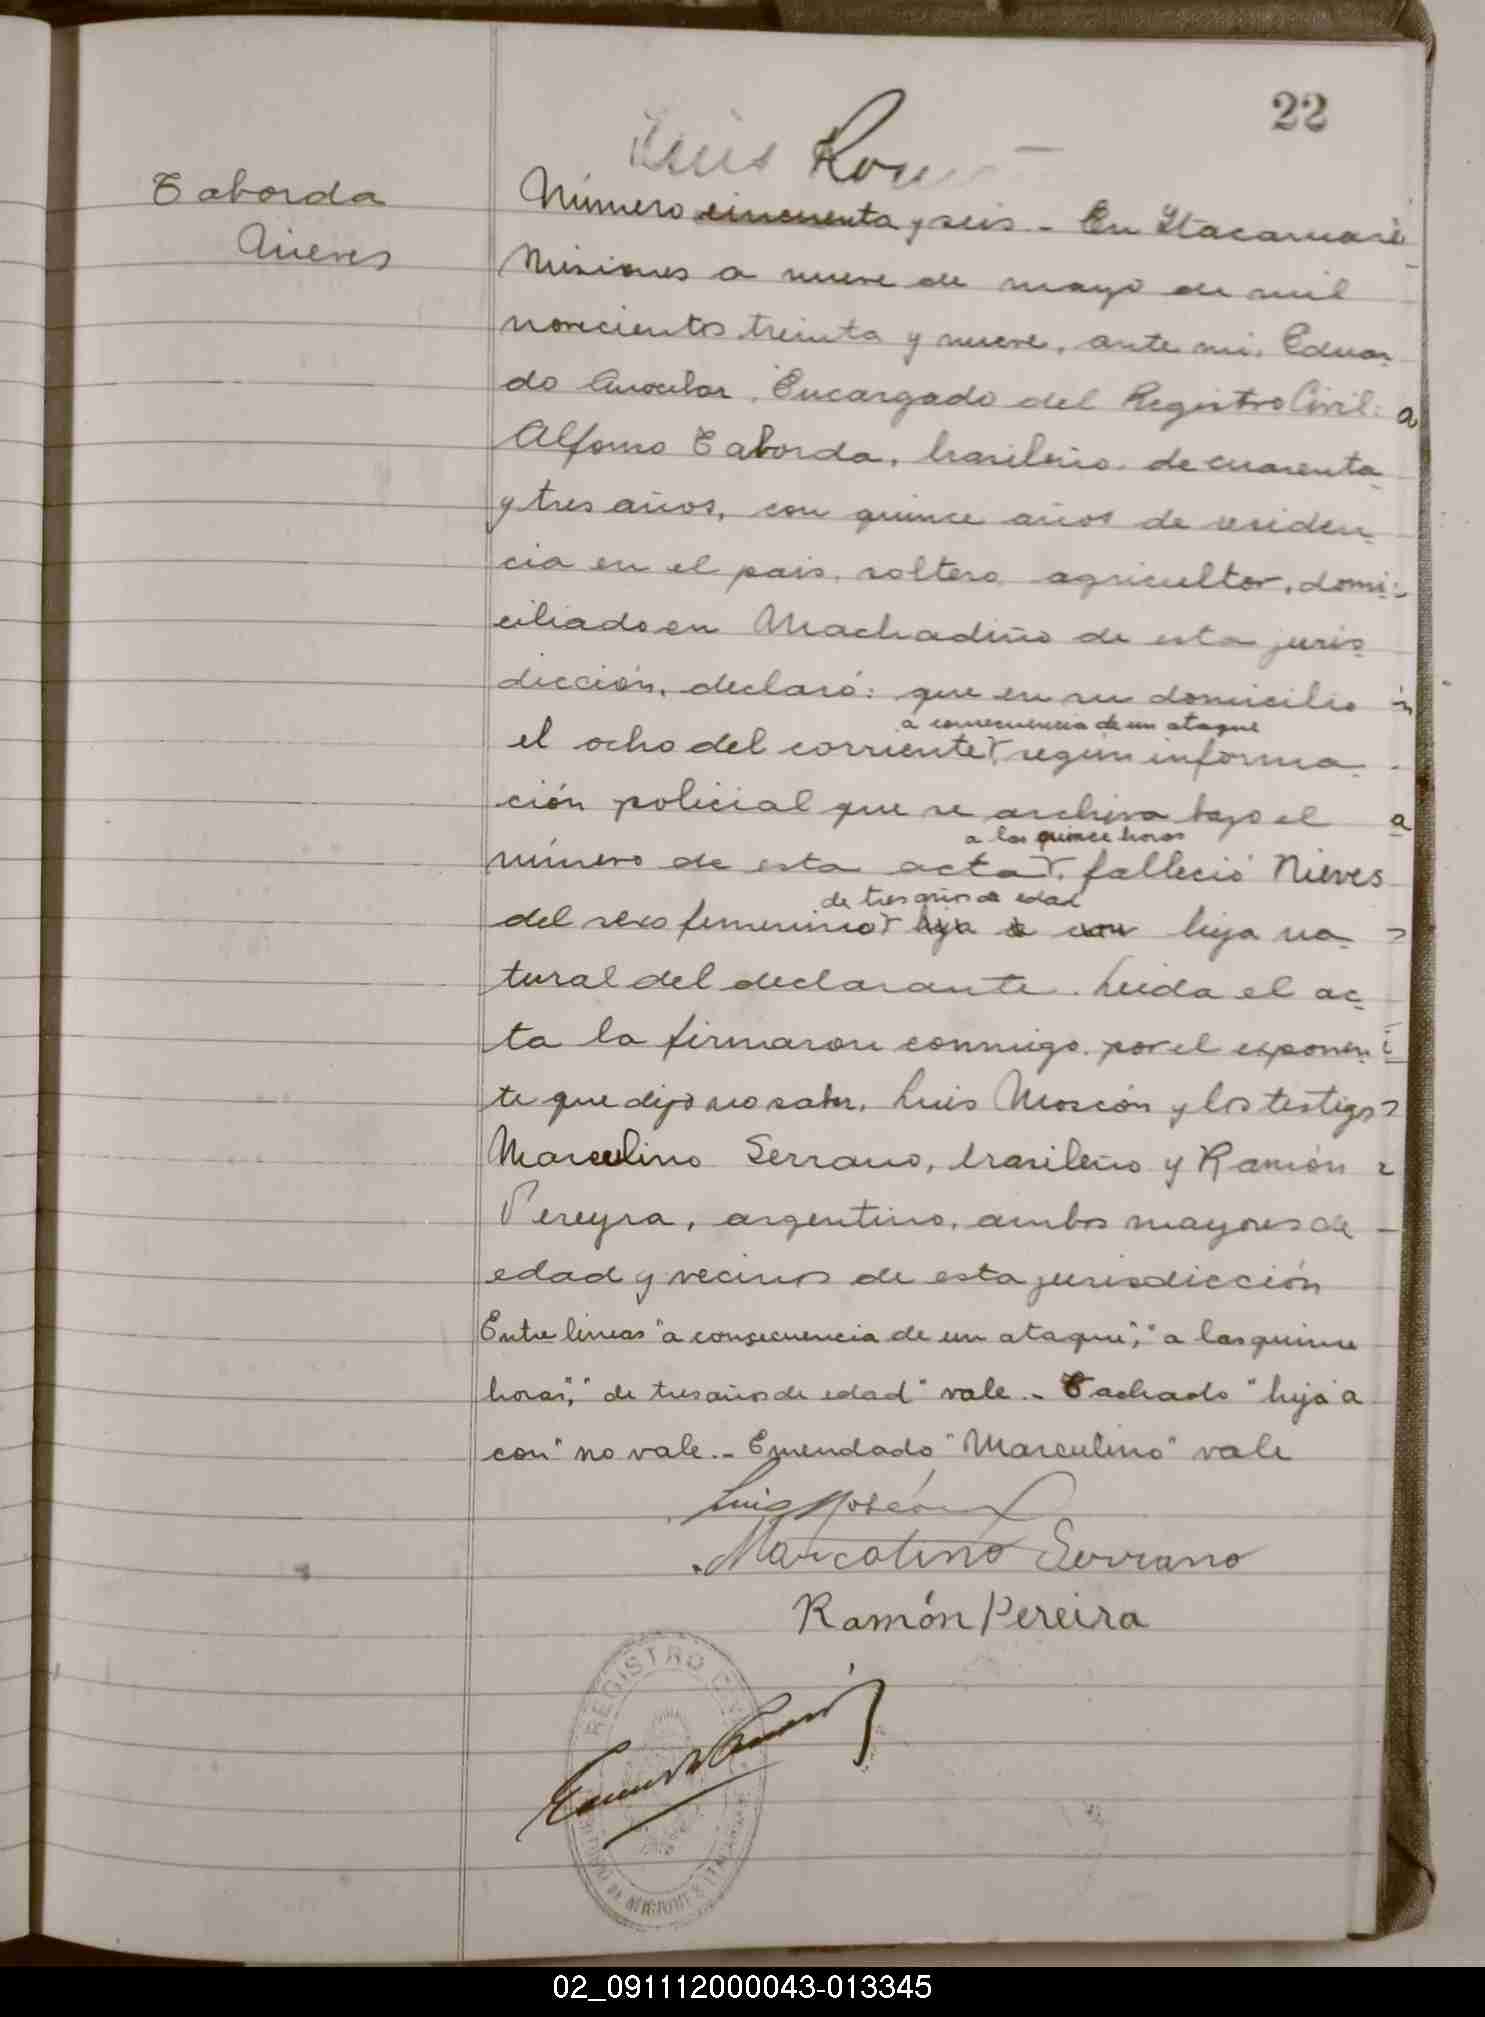 22
Luis
Taborda
Nieves
Número cincuenta y seis - En Itacaruaré
Misiones a nueve de mayo de mil
novecientos treinta y nueve, ante mi, Eduar
do Encargado del Registro Civil:
Alfonso Taborda, brasileño de cuarenta
y tres años, con quince años de residen
cia en el pais, soltero agricultor, domi-
ciliado en Machadiño de esta juris
dicción, declaró: que en su domicilio
a consecuencia de un ataque
el ocho del corriente, según informa
ción policial que se archiva bajo el
a las quince horas
número de esta acta, falleció Nieves
de tres años de edad
del sexo femenino hija a con hija na
tural del declarante. Leida el ac
ta la firmaron conmigo por el exponen
te que dijo no saber, Luis Moscón y los testigos
Marculino Serrano, brasileño y Ramón
Pereyra, argentino, ambos mayores de
edad y vecinos de esta jurisdicción
Entre lineas "a consecuencia de un ataque", "a las quince
horas", "de tres años de edad" vale.- Tachado "hija a
con" no vale.- Emendado "Marculino" vale
Luis Moscón
Marcolino Serrano
Ramón Pereira
REGISTRO CIVIL
02_091112000043-013345